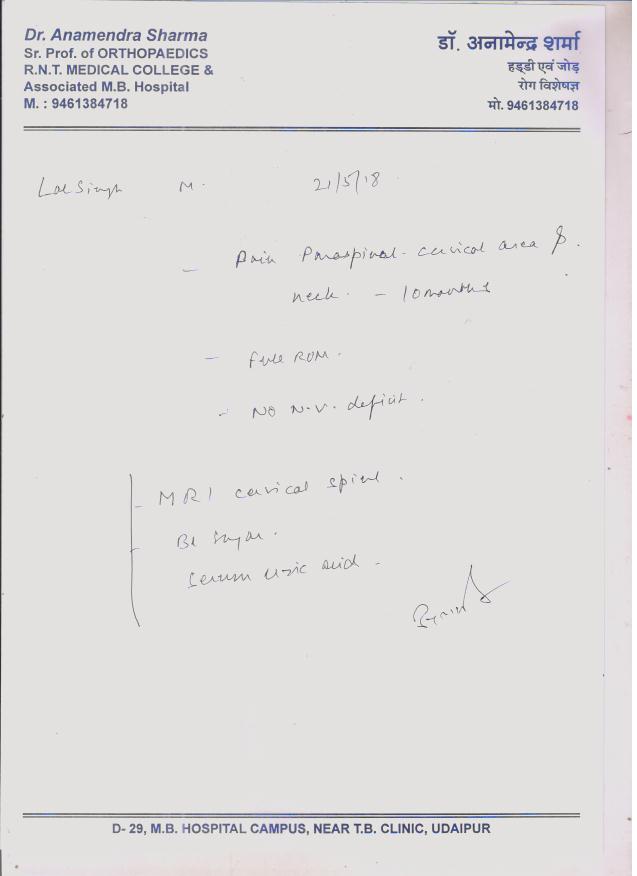 Dr. Anamendra Sharma
Sr. Prof. of ORTHOPAEDICS
R.N.T. MEDICAL COLLEGE &
Associated M.B. Hospital
M. : 9461384718
डॉ. अनामेन्द्र शर्मा
हड्डी एवं जोड़
रोग विशेषज्ञ
मो. 9461384718
Lal Singh M. 21/5/18
- Pain Paraspinal cervical area &
neck. - 10 months
- Full ROM.
- NO N.V. deficit.
- MRI cervical spine.
- Bl Sugar.
Serum uric acid -
D- 29, M.B. HOSPITAL CAMPUS, NEAR T.B. CLINIC, UDAIPUR